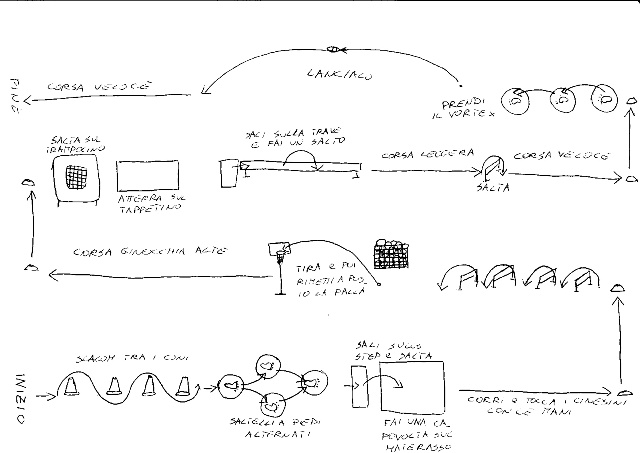 FINE
CORSA VELOCE
LANCIALO
PRENDI
IL VORTEX
SALTA SUL
TRAMPOLINO
ATTERRA SUL
TAPPETINO
SALI SULLA TRAVE
E FAI UN SALTO
CORSA LEGGERA
SALTA
CORSA VELOCE
CORSA GINOCCHIA ALTE
TIRA E POI
RIMETTI A POS-
TO LA PALLA
INIZIO
SLALOM TRA I CONI
SALTELLI A PIEDI
ALTERNATI
SALI SULLO
STEP E SALTA
FAI UNA CA
POVOLTA SUL
MATERASSO
CORRI E TOCCA I CINESINI
CON LE MANI